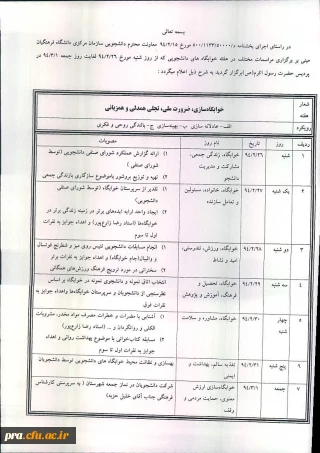 بسمه تعالی
در راستای اجرای بخشنامه ۵۰۰/۱۱۳۳/۵۰۰۰۰/د مورخ ۹۴/۲/۱۵ معاونت محترم دانشجویی سازمان مرکزی دانشگاه فرهنگیان
مبنی بر برگزاری مراسمات مختلف در هفته خوابگاه های دانشجویی که از روز شنبه مورخ ۹۴/۲/۲۶ لغایت روز جمعه ۹۴/۳/۱ در
پردیس حضرت رسول اکرم(ص) برگزار گردید به شرح ذیل اعلام میگردد :
شعار هفته
خوابگاهسازی، ضرورت ملی، تجلی همدلی و همزبانی
رویکرد
الف- عادلانه سازی ب- بهینه‌سازی ج- بالندگی روحی و فکری
ردیف روز تاریخ نام روز مصوبات
۱ شنبه ۹۴/۲/۲۶ خوابگاه، زندگی جمعی، مشارکت و مدیریت دانشجو
۱) ارائه گزارش عملکرد شورای صنفی دانشجویی (توسط شورای صنفی)
۲) تهیه و توزیع بروشور باموضوع سازگاری بازندگی جمعی
۲ یک شنبه ۹۴/۲/۲۷ خوابگاه، خانواده، مسئولین و تعامل سازنده
۱) تقدیر از سرپرستان خوابگاه (توسط شورای صنفی)
۲) ایجاد واحد ارایه ایده‌های برتر در زمینه زندگی برتر در خوابگاه‌ها (استاد رضا زارع‌پور) و اهداء جوایز به نفرات اول تا سوم
۳ دو شنبه ۹۴/۲/۲۸ خوابگاه، ورزش، تندرستی، امید و نشاط
۱) انجام مسابقات دانشجویی تنیس روی میز و شطرنج فوتسال و والیبال(جام خوابگاه) و اهداء جوایز به نفرات
۲) سخنرانی در مورد ترویج فرهنگ ورزش‌های همگانی
۴ سه شنبه ۹۴/۲/۲۹ خوابگاه، تحصیل و فرهنگ، آموزش و پژوهش
انتخاب اتاق نمونه و دانشجوی نمونه در خوابگاه بر اساس نظرسنجی از دانشجویان و سرپرستان خوابگاه‌ها واهداء جوایز به نفرات فوق
۵ چهار شنبه ۹۴/۲/۳۰ خوابگاه، مشاوره و سلامت
۱) آشنایی با مضرات و خطرات مصرف مواد مخدر، مشروبات الکلی و روانگردان و ... (استاد رضا زارع‌پور)
۲) مسابقه کتاب‌خوانی با موضوع بهداشت روانی و اهداء جوایز به نفرات اول تا سوم
۶ پنج شنبه ۹۴/۲/۳۱ تغذیه سالم، بهداشت و ایمنی
بهسازی و نظافت محیط خوابگاه های دانشجویی توسط دانشجویان
۷ جمعه ۹۴/۳/۱ خوابگاهسازی ارزش معنوی، حمایت مردمی و وقف
شرکت دانشجویان در نماز جمعه شهرستان ( به سرپرستی کارشناس فرهنگی جناب آقای خلیل حزبه)
pra.cfu.ac.ir